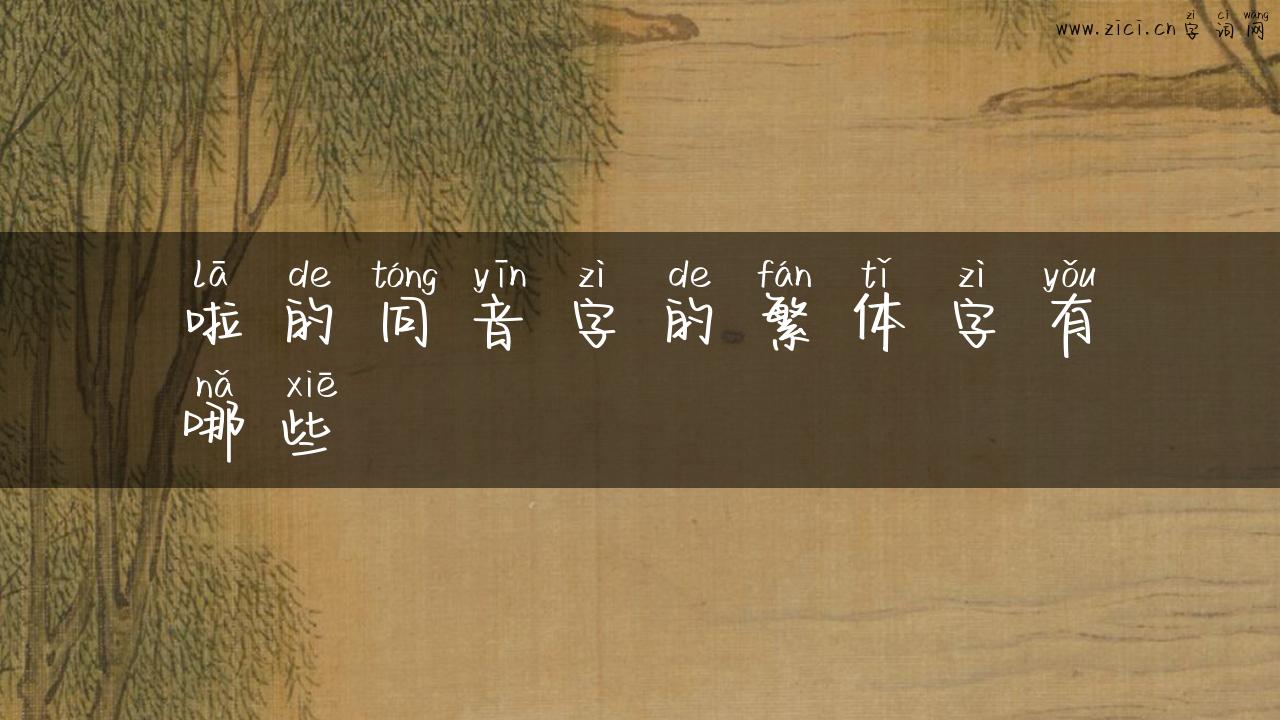 zì cí wǎng
www.zici.cn 字词网
lā de tóng yīn zì de fán tǐ zì yǒu
啦的同音字的繁体字有
nǎ xiē
哪些